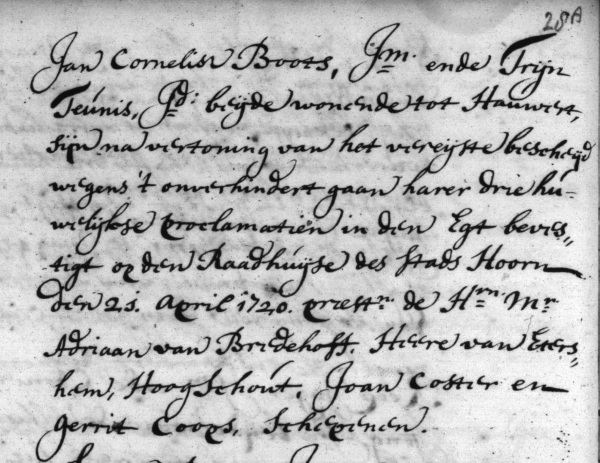 28A
Jan Cornelisz Boots, Jm. ende Trijn
Teunis, Jd: beijde wonende tot Hauwert,
sijn na vertoning van het vereijste bescheijd
wegens 't onverhindert gaan harer drie hu-
welijkse proclamatien in den Egt beves„
tigt op den Raadhuijse des stads Hoorn
den 21. April 1720. præstn. de Hrn Mr
Adriaan van Bredehoff. Heere van Eters„
hem, Hoog Schout, Joan Coster en
Gerrit Coops, Schepenen.